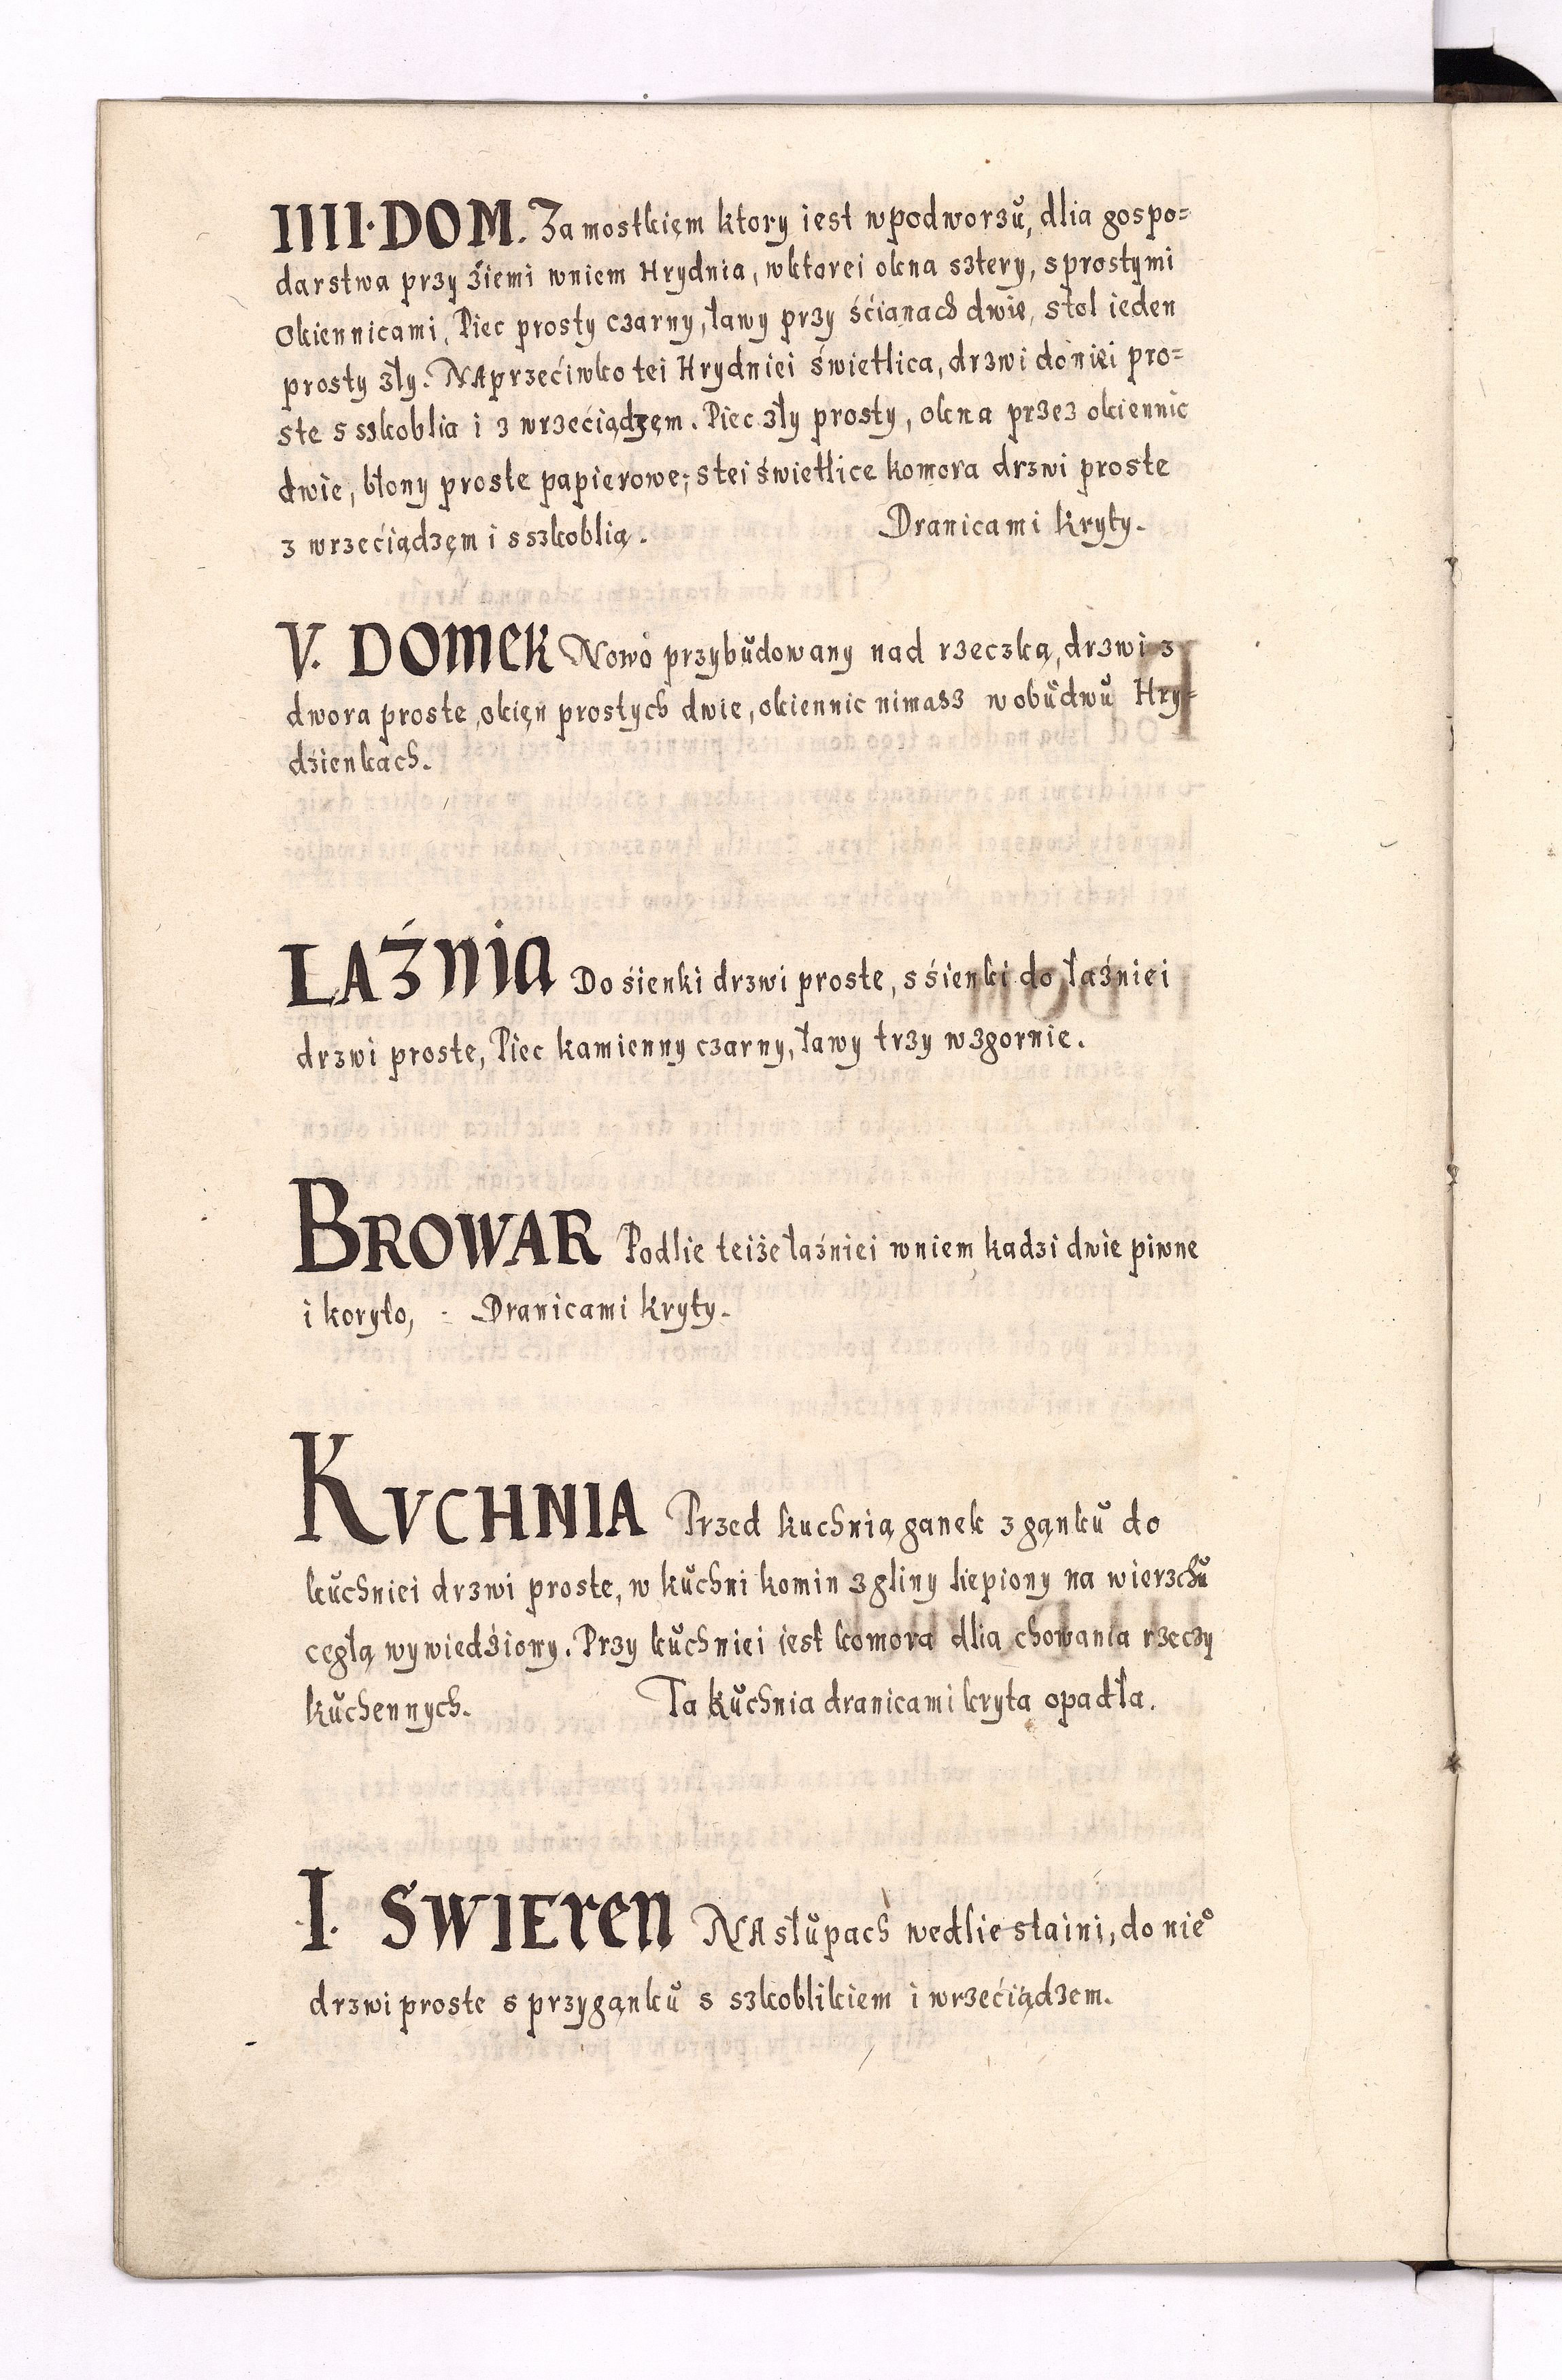 IIII. DOM. Za mostkięm ktory iest wpodworzŭ, dlia gospo=
darstwa przy źiemi wniem Hrydnia, wktorei okna sztery, sprostymi
Okiennicami, Piec prosty czarny, ławy przy śćianach dwie, stol ieden
prosty zły. NAprzećiwko tei Hrydniei świetlica, drzwi do niei pro=
ste s szkoblia i z wrzećiądzęm. Piec zły prosty, okna przez okiennic
dwie, błony proste papierowe; stei świetlice komora drzwi proste
z wrzećiądzęm i s szkoblią. Dranicami kryty.
V. DOMEK Nowo przybŭdowany nad rzeczką, drzwi z
dwora proste, okięn prostych dwie, okiennic nimasz w obŭdwŭ Hry=
dzienkach.
LAŹNIA Do śienki drzwi proste, s śienki do łaźniei
drzwi proste, Piec kamienny czarny, ławy trzy wzgornie.
BROWAR Podlie teiże łaźniei wniem kadzi dwie piwne
i koryto, - Dranicami kryty.
KVCHNIA Przed kuchnią ganek z gankŭ do
kŭchniei drzwi proste, w kŭchni komin z gliny liepiony na wierzchŭ
cegłą wywiedźiony. Przy kŭchniei iest komora dlia chowania rzeczy
kŭchennych. Ta kŭchnia dranicami kryta opadła.
I. SWIEREN NA słŭpach wedlie staini, do nie°
drzwi proste s przygankŭ s szkoblikiem i wrzećiądzem.